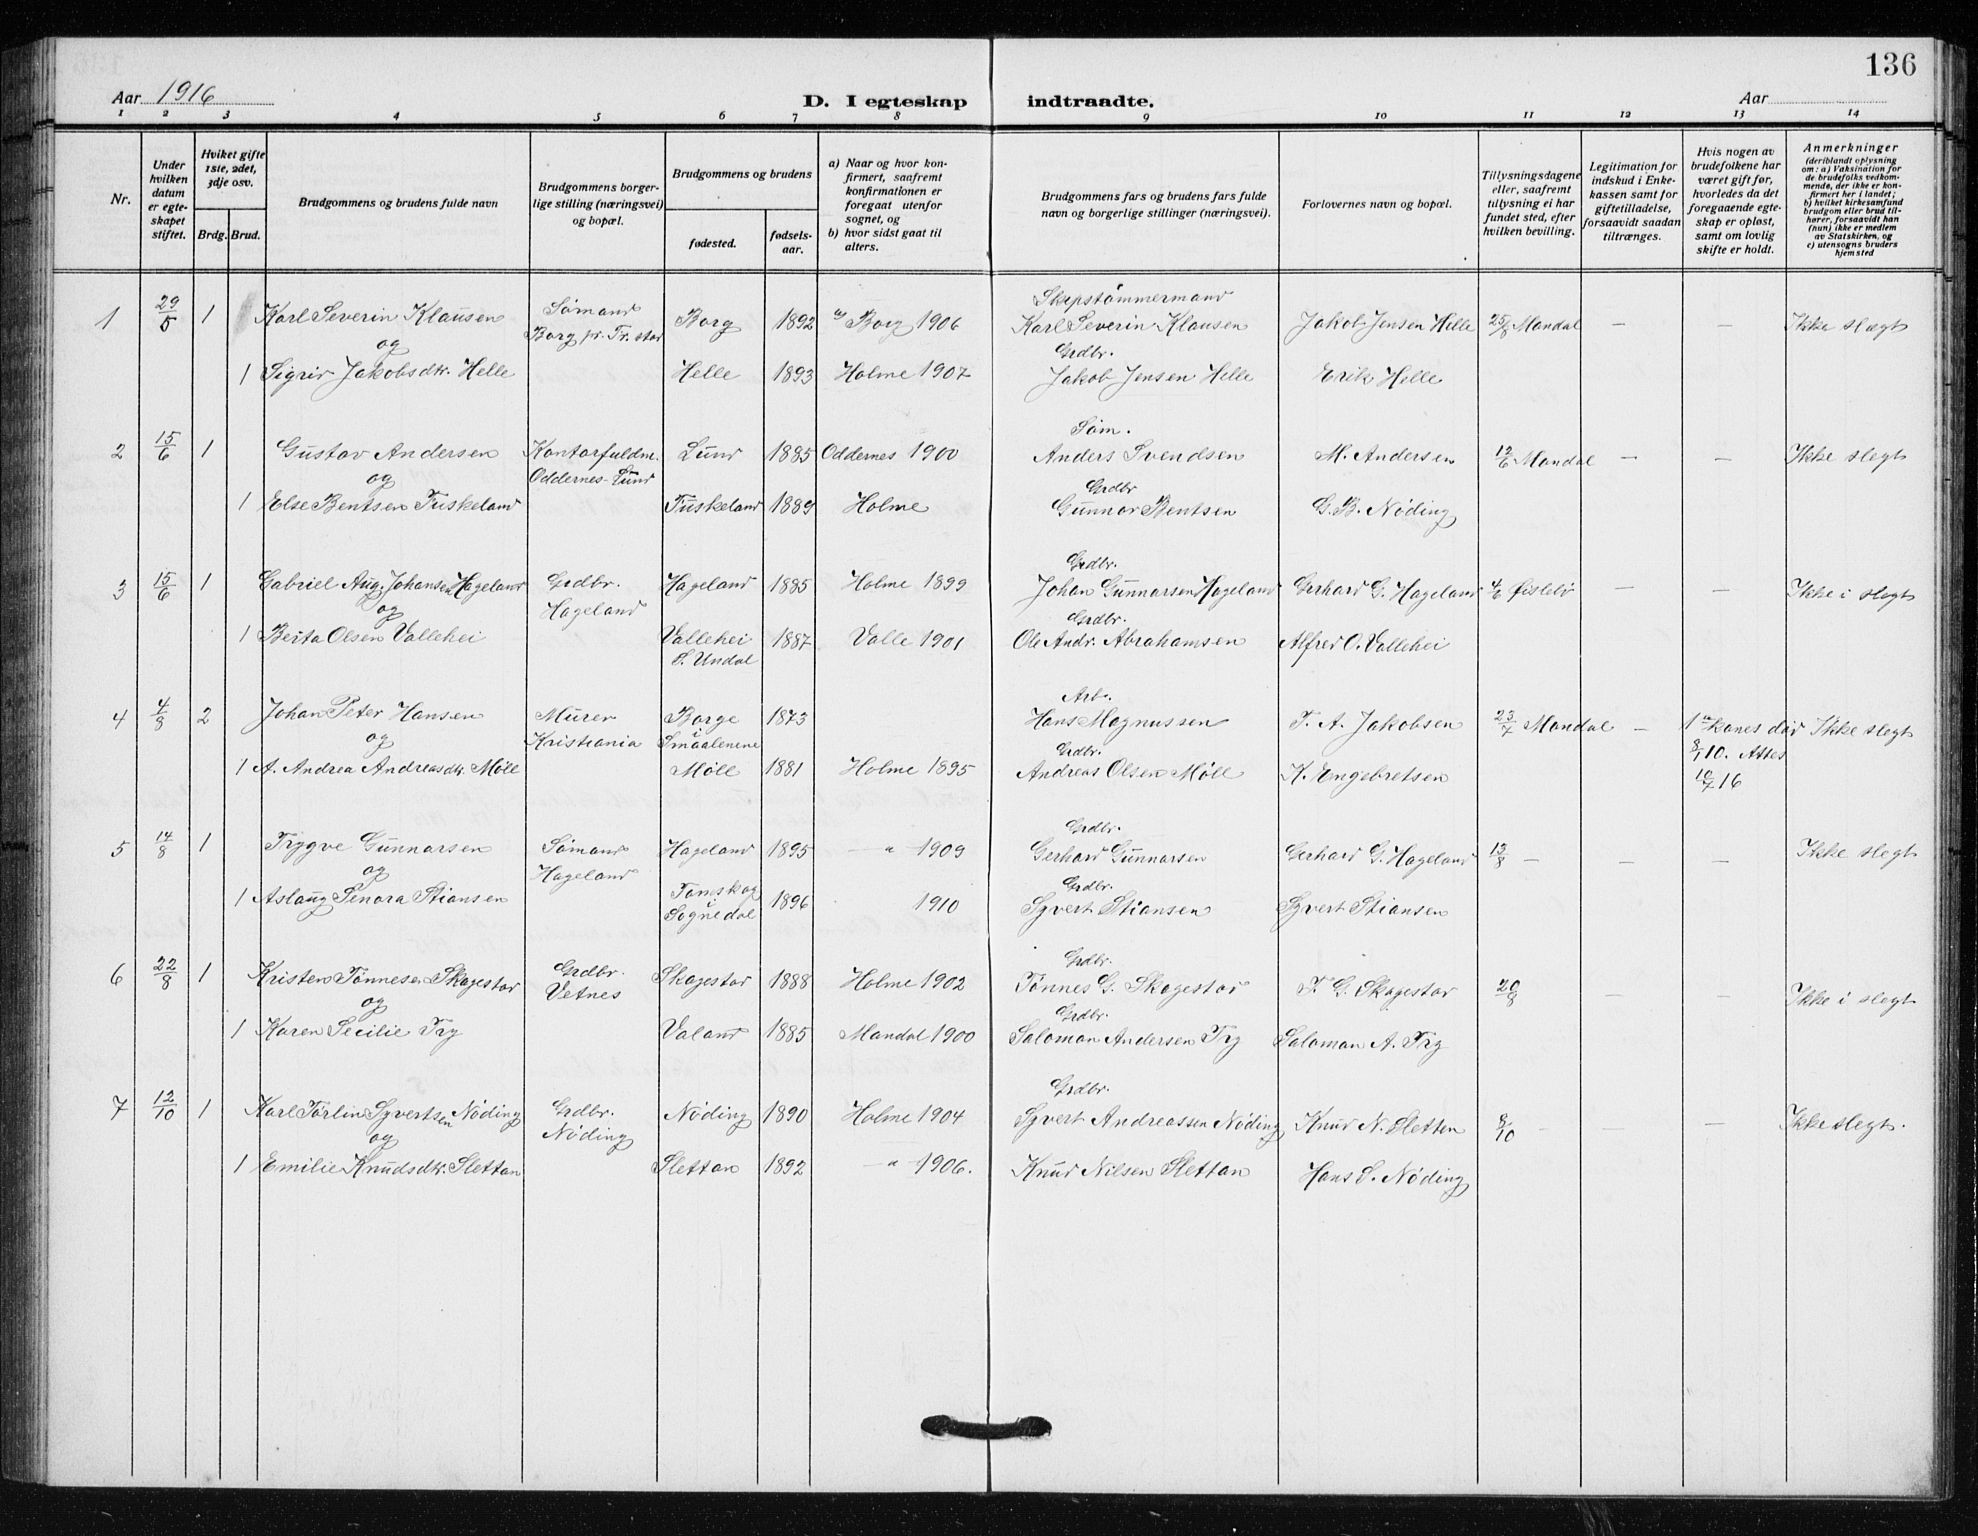 136
Aar 1916 D. I egteskap indtraadte. Aar
1 2 3 4 5 6 7 8 9 10 11 12 13 14
Nr.
Under hvilken datum er egteskapet stiftet.
Hviket gifte 1ste, 2det, 3dje osv.
Brdg. Brud.
Brudgommens og brudens fulde navn
Brudgommens borgerlige stilling (næringsvei) og bopæl.
Brudgommens og brudens
fødested. fødselsaar.
a) Naar og hvor konfirmert, saafremt konfirmationen er foregaat utenfor sognet, og
b) hvor sidst gaat til alters.
Brudgommens fars og brudens fars fulde navn og borgerlige stillinger (næringsvei).
Forlovernes navn og bopæl.
Tillysningsdagene eller, saafremt tillysning ei har fundet sted, efter hvilken bevilling.
Legitimation for indskud i Enkekassen samt for giftetilladelse, forsaavidt saadan tiltrænges.
Hvis nogen av brudefolkene har været gift før, hvorledes da det foregaaende egteskap er opløst, samt om lovlig skifte er holdt.
Anmerkninger
(deriblandt oplysning om: a) Vaksination for de brudefolks vedkommende, der ikke er konfirmert her i landet; b) hvilket kirkesamfund brudgom eller brud tilhører, forsaavidt han (hun) ikke er medlem av Statskirken, og c) utensogns bruders hjemsted
Sømand Skipstømmermand
1 29/5 1 Karl Severin Klausen Borg pr. Fr.stad Borg 1892 Borg 1906 Karl Severin Klausen Jakob Jensen Helle 25/5 Mandal — — Ikke slegt
og Grdbr.
1 Sigrid Jakobsdtr. Helle Helle 1893 Holme 1907 Jakob Jensen Helle Erik Helle
Søm.
2 15/6 1 Gustav Andersen Kontorfuldm. Lund 1885 Oddernes 1900 Anders Svendsen M. Andersen 12/6 Mandal — — Ikke slegt
og Oddernes-Lund Grdbr
1 Else Bentsen Tuskeland Tuskeland 1889 Holme Gunnar Bentsen G. B. Nøding
Grdbr.
3 15/6 1 Gabriel Aug. Johansen Hageland Grdbr. Hageland 1885 Holme 1899 Johan Gunnarsen Hageland Gerhard G. Hageland 4/6 Øislebø — — Ikke i slegt
og Hageland Grdbr.
1 Berta Olsen Vallehei Vallehei 1887 Valle 1901 Ole Andr. Abrahamsen Alfred O. Vallehei
S. Undal
Arb.
4 4/8 2 Johan Peter Hansen Murer Borge 1873 Hans Magnussen T. A. Jakobsen 23/7 Mandal — 1ste kones død Ikke slegt
og Kristiania Smaalenene Grdbr. 8/1 10. Attes
1 A. Andrea Andreasdtr. Møll Møll 1881 Holme 1895 Andreas Olsen Møll K. Engebretsen 10/7 16
Grdbr.
5 14/8 1 Trygve Gunnarsen Sømand Hageland 1895 — " 1909 Gerhard Gunnarsen Gerhard G. Hageland 13/8 — — — Ikke slegt
og Hageland Grdbr.
1 Aslaug Senora Stiansen Toneskog 1896 1910 Syvert Stiansen Syvert Stiansen
Søgnedal
Grdbr.
6 22/8 1 Kristen Tønnesen Skagestad Grdbr. Skagestad 1888 Holme 1902 Tønnes G. Skagestad T. G. Skagestad 20/8 — — Ikke i slegt
og Vetnes Grdbr.
1 Karen Secilie Try Valand 1885 Mandal 1900 Salomon Andersen Try Salomon A. Try
Grdbr.
7 12/10 1 Karl Torlin Syvertsen Nøding Grdbr. Nøding 1890 Holme 1904 Syvert Andreassen Nøding Knud N. Sletten 8/10 — — — Ikke slegt.
og Nøding
1 Emilie Knudsdtr. Slettan Slettan 1892 — " 1906. Knud Nilsen Slettan Hans S. Nøding